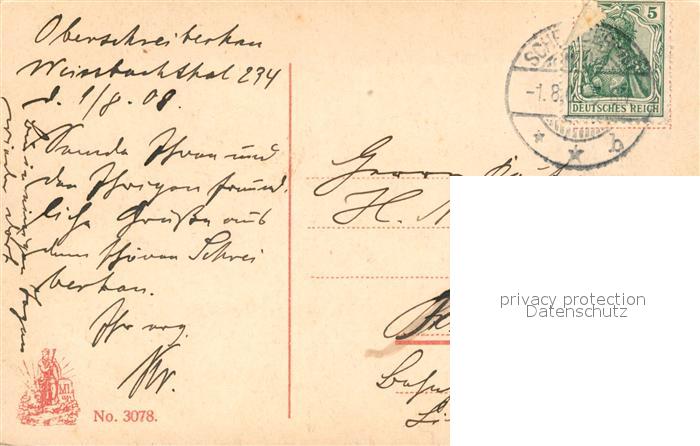 Oberschreiberhau
Weissbachthal 234
d. 1/8. 08.
Sende Ihnen und
den Ihrigen freund-
liche Grüße aus
dem schönen Schrei
berhau.
Ihr erg.
in einigen Tagen
wieder dort
No. 3078.
Herrn
H.
5
DEUTSCHES REICH
SCH
-1.8.
* * b
privacy protection
Datenschutz